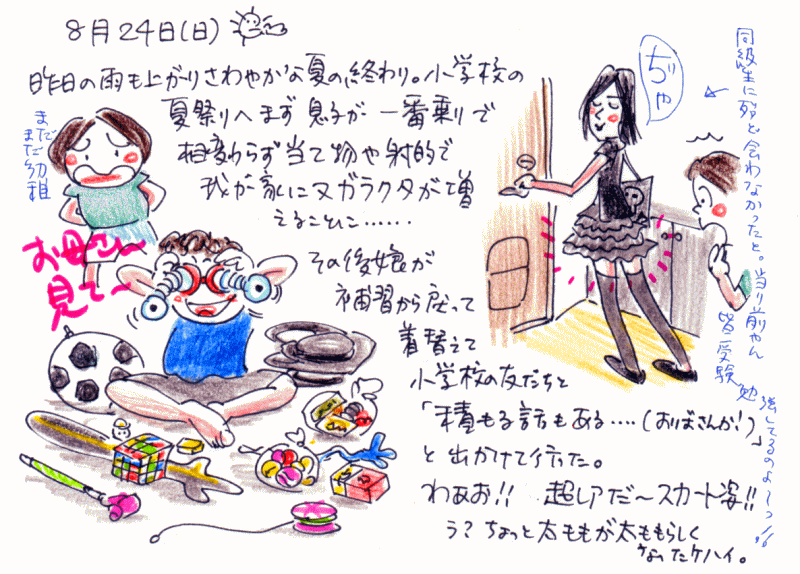 8月24日(日)
昨日の雨も上がりさわやかな夏の終わり。小学校の
夏祭りへまず息子が一番乗りで
相変わらず当て物や射的で
我が家に又ガラクタが増
えることに……
まだ
まだ幼稚
お母さ〜ん
見て〜
その後娘が
補習から戻って
着替えて
小学校の友だちと
「積もる話もある....(おばさんか!)」
と出かけて行った。
わぁお!! 超レアだ〜スカート姿!!
う?ちょっと太ももが太ももらしく
なったケハイ。
ぢゃ
同級生に殆ど会わなかったと。当り前やん
皆受験勉強してるのよーっ!!